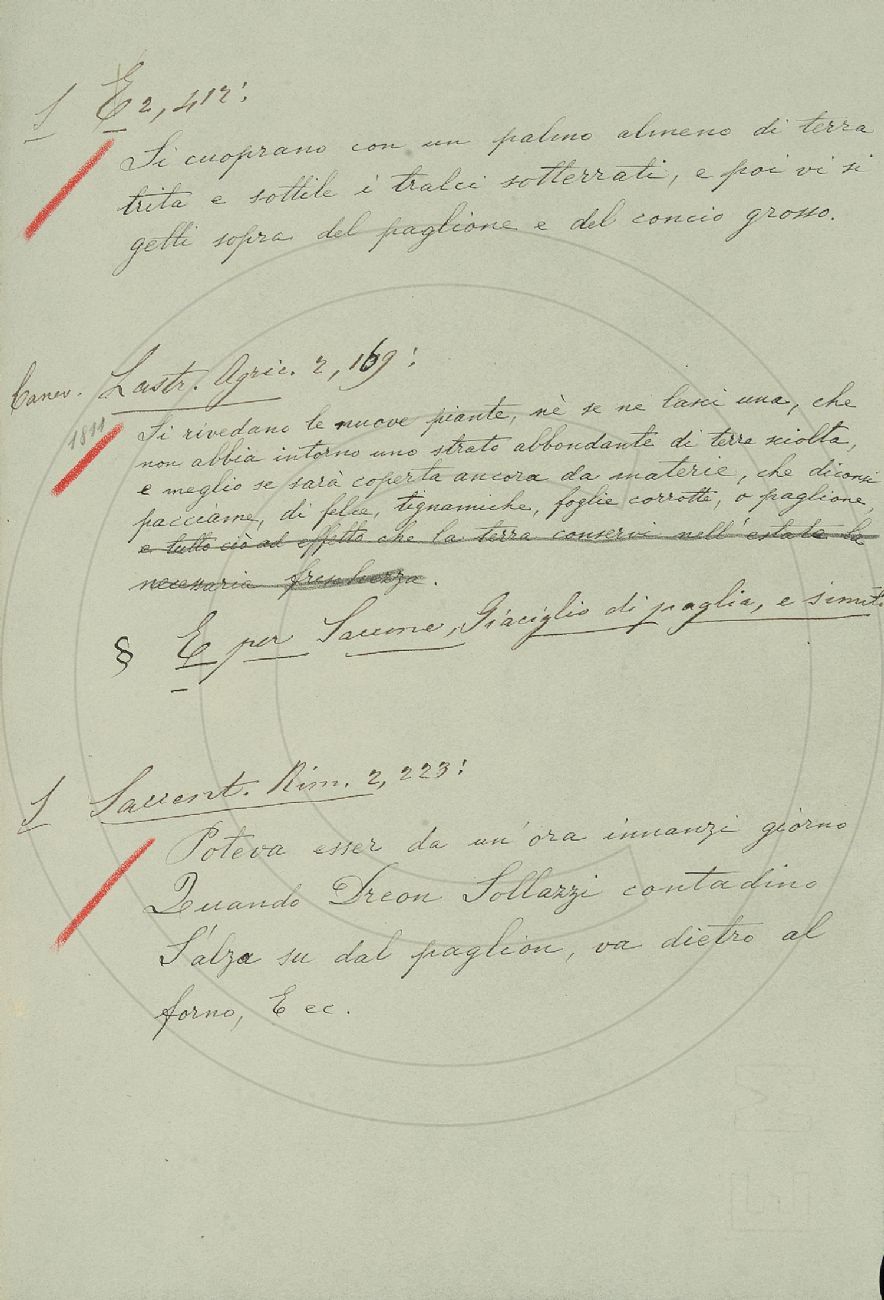 S E 2, 412:
Si cuoprano con un palmo almeno di terra
trita e sottile i tralci sotterrati, e poi vi si
getti sopra del paglione e del concio grosso.
Canev. Lastr. Agric. 2, 169:
1811
Si rivedano le nuove piante, nè se ne lasci una, che
non abbia intorno uno strato abbondante di terra sciolta,
e meglio se sarà coperta ancora da materie, che diconsi
pacciame, di felce, tignamiche, foglie corrotte, o paglione,
e tutto ciò ad effetto che la terra conservi nell'estate la
necessaria freschezza.
§ E per Saccone, Giaciglio di paglia, e simili
S Saccent. Rim. 2, 223:
Poteva esser da un'ora innanzi giorno
Quando Dreon Sollazzi contadino
S'alza su dal paglion, va dietro al
forno, Ecc.